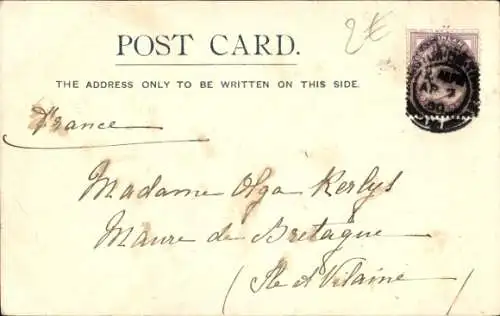 2€
POST CARD.
THE ADDRESS ONLY TO BE WRITTEN ON THIS SIDE.
France
Madame Olga Kerlys
Maure de Bretagne
(Ile et Vilaine)